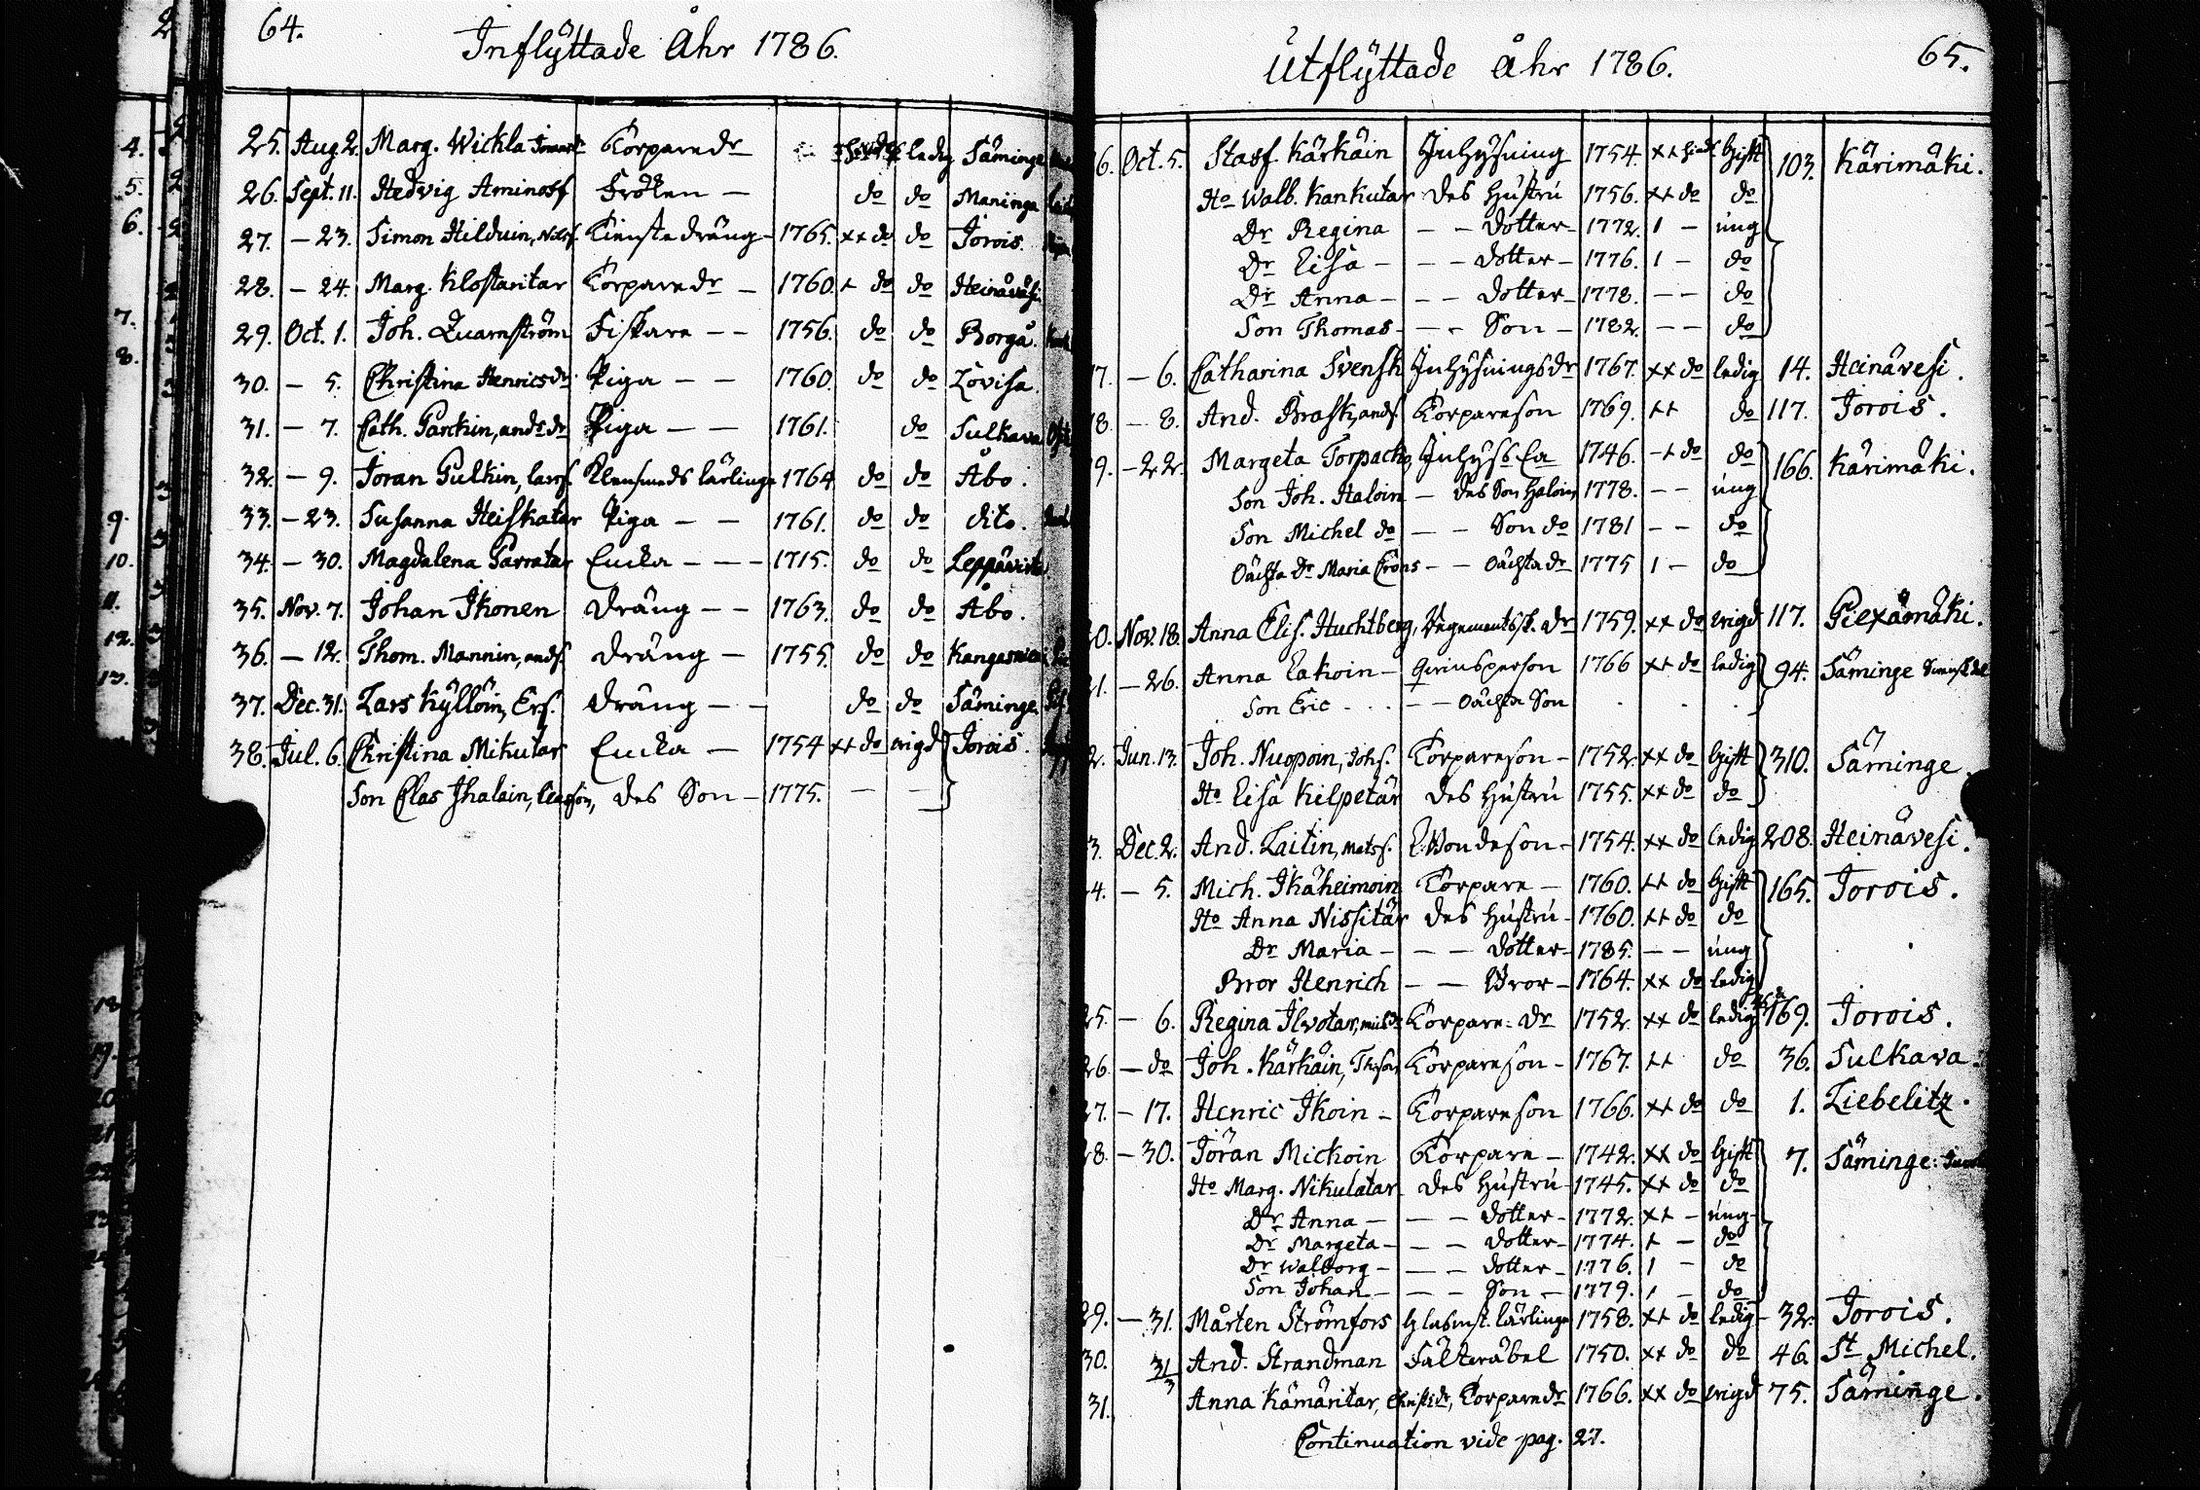 64.
Inflyttade Åhr 1786.
25. Aug 2. Marg. Wickla Torparedr ledig Säminge
26. Sept. 11. Hedvig Aminoff Fröken — do do Maninga
27. — 23. Simon Hilduin, Nilss. Tienste dräng — 1765. ×× do do Jorois
28. — 24. Marg. Klostaritar Torparedr — 1760. × do do Heinävesi
29. Oct. 1. Joh. Quarnström Fiskare — — 1756. do do Borgå.
30. — 5. Christina Henricsdr. Piga — — 1760. do do Lovisa.
31. — 7. Cath. Parckin, andsdr Piga — — 1761. do Sulkava
32. — 9. Jöran Pulkin, larss. Klensmeds lärlinge 1764 do do Åbo.
33. — 23. Susanna Heiskatar Piga — — 1761. do do dito.
34. — 30. Magdalena Parratar Encka — — — 1715. do do Leppävirta
35. Nov. 7. Johan Ikonen dräng — — 1763. do do Åbo.
36. — 12. Thom. Mannin, ands. dräng — 1755. do do Kangasniemi
37. Dec. 31. Lars Kyllöin, Ers. dräng — — do do Säminge
38. Jul. 6. Christina Mikutar Encka — 1754 ×× do frigd Jorois.
Son Clas Ihalain, Classon, des Son — 1775. — —
65.
Utflyttade Åhr 1786.
6. Oct. 5. Staff Kärkäin Inhysning 1754. ×× Gift 103. Kärimäki.
Ho Walb. Kankutar des Hustru 1756. ×× do do
Dr Regina — — dotter — 1772. 1 — ung
Dr Lisa — — — dotter — 1776. 1 — do
Dr Anna — — — dotter — 1778. — — do
Son Thomas — — — Son — 1782. — — do
7. — 6. Catharina Svensk Inhysningsdr 1767. ×× do ledig 14. Heinävesi.
8. — 8. And. Brask, ands. Torpareson 1769. ×× do 117. Jorois.
9. — 22. Margeta Torpach, Inhyss. Ea 1746. —× do do 166. Kärimäki.
Son Joh. Haloin — des Son Haloin 1778. — — ung
Son Michel do — — Son do 1781 — — do
Oächta Dr Maria — — Oächta dr 1775 1 — do
0. Nov. 18. Anna Elis. Huchtberg, dr 1759. ×× do frigd 117. Piexämäki.
1. — 26. Anna Lakoin — Qvinsperson 1766 ×× do ledig 94. Säminge
Son Eric — — Oächta Son
2. Jun. 13. Joh. Nuopoin, Johs. Torpareson — 1752. ×× do Gift 310. Säminge.
Ho Lisa Kilpetär des Hustru 1755. ×× do do
3. Dec. 2. And. Laitin, Matss. Bondeson — 1754. ×× do ledig 208. Heinävesi.
4. — 5. Mich. Ikäheimoin Torpare — 1760. ×× do Gift 165. Jorois.
Ho Anna Nissitär des Hustru — 1760. ×× do do
Dr Maria — — — dotter — 1785. — — ung
Bror Henrich — — Bror — 1764. ×× do ledig
25. — 6. Regina Ilvotar, Torpare: dr 1752. ×× do ledig 169. Jorois.
26. — do Joh. Kärkäin, Thsson Torpareson — 1767. ×× do 36. Sulkava.
27. — 17. Henric Ikoin — Torpareson 1766. ×× do do 1. Liebelitz.
28. — 30. Jöran Mickoin Torpare — 1742. ×× do Gift 7. Säminge:
Ho Marg. Nikulatar des Hustru — 1745. ×× do do
Dr Anna — — — dotter — 1772. ×× — ung
Dr Margeta — — — dotter — 1774. × — do
Dr Walborg — — — dotter — 1776. 1 — do
Son Johan — — — Son — 1779. 1 — do
29. — 31. Mårten Strömfors lärlinge 1758. ×× do ledig — 32. Jorois.
30. 31/3 And. Strandman Fältväbel 1750. ×× do do 46. St Michel.
31. Anna Kämäritar, Torparedr 1766. ×× do frigd 75. Säminge.
Continuation vide pag. 27.